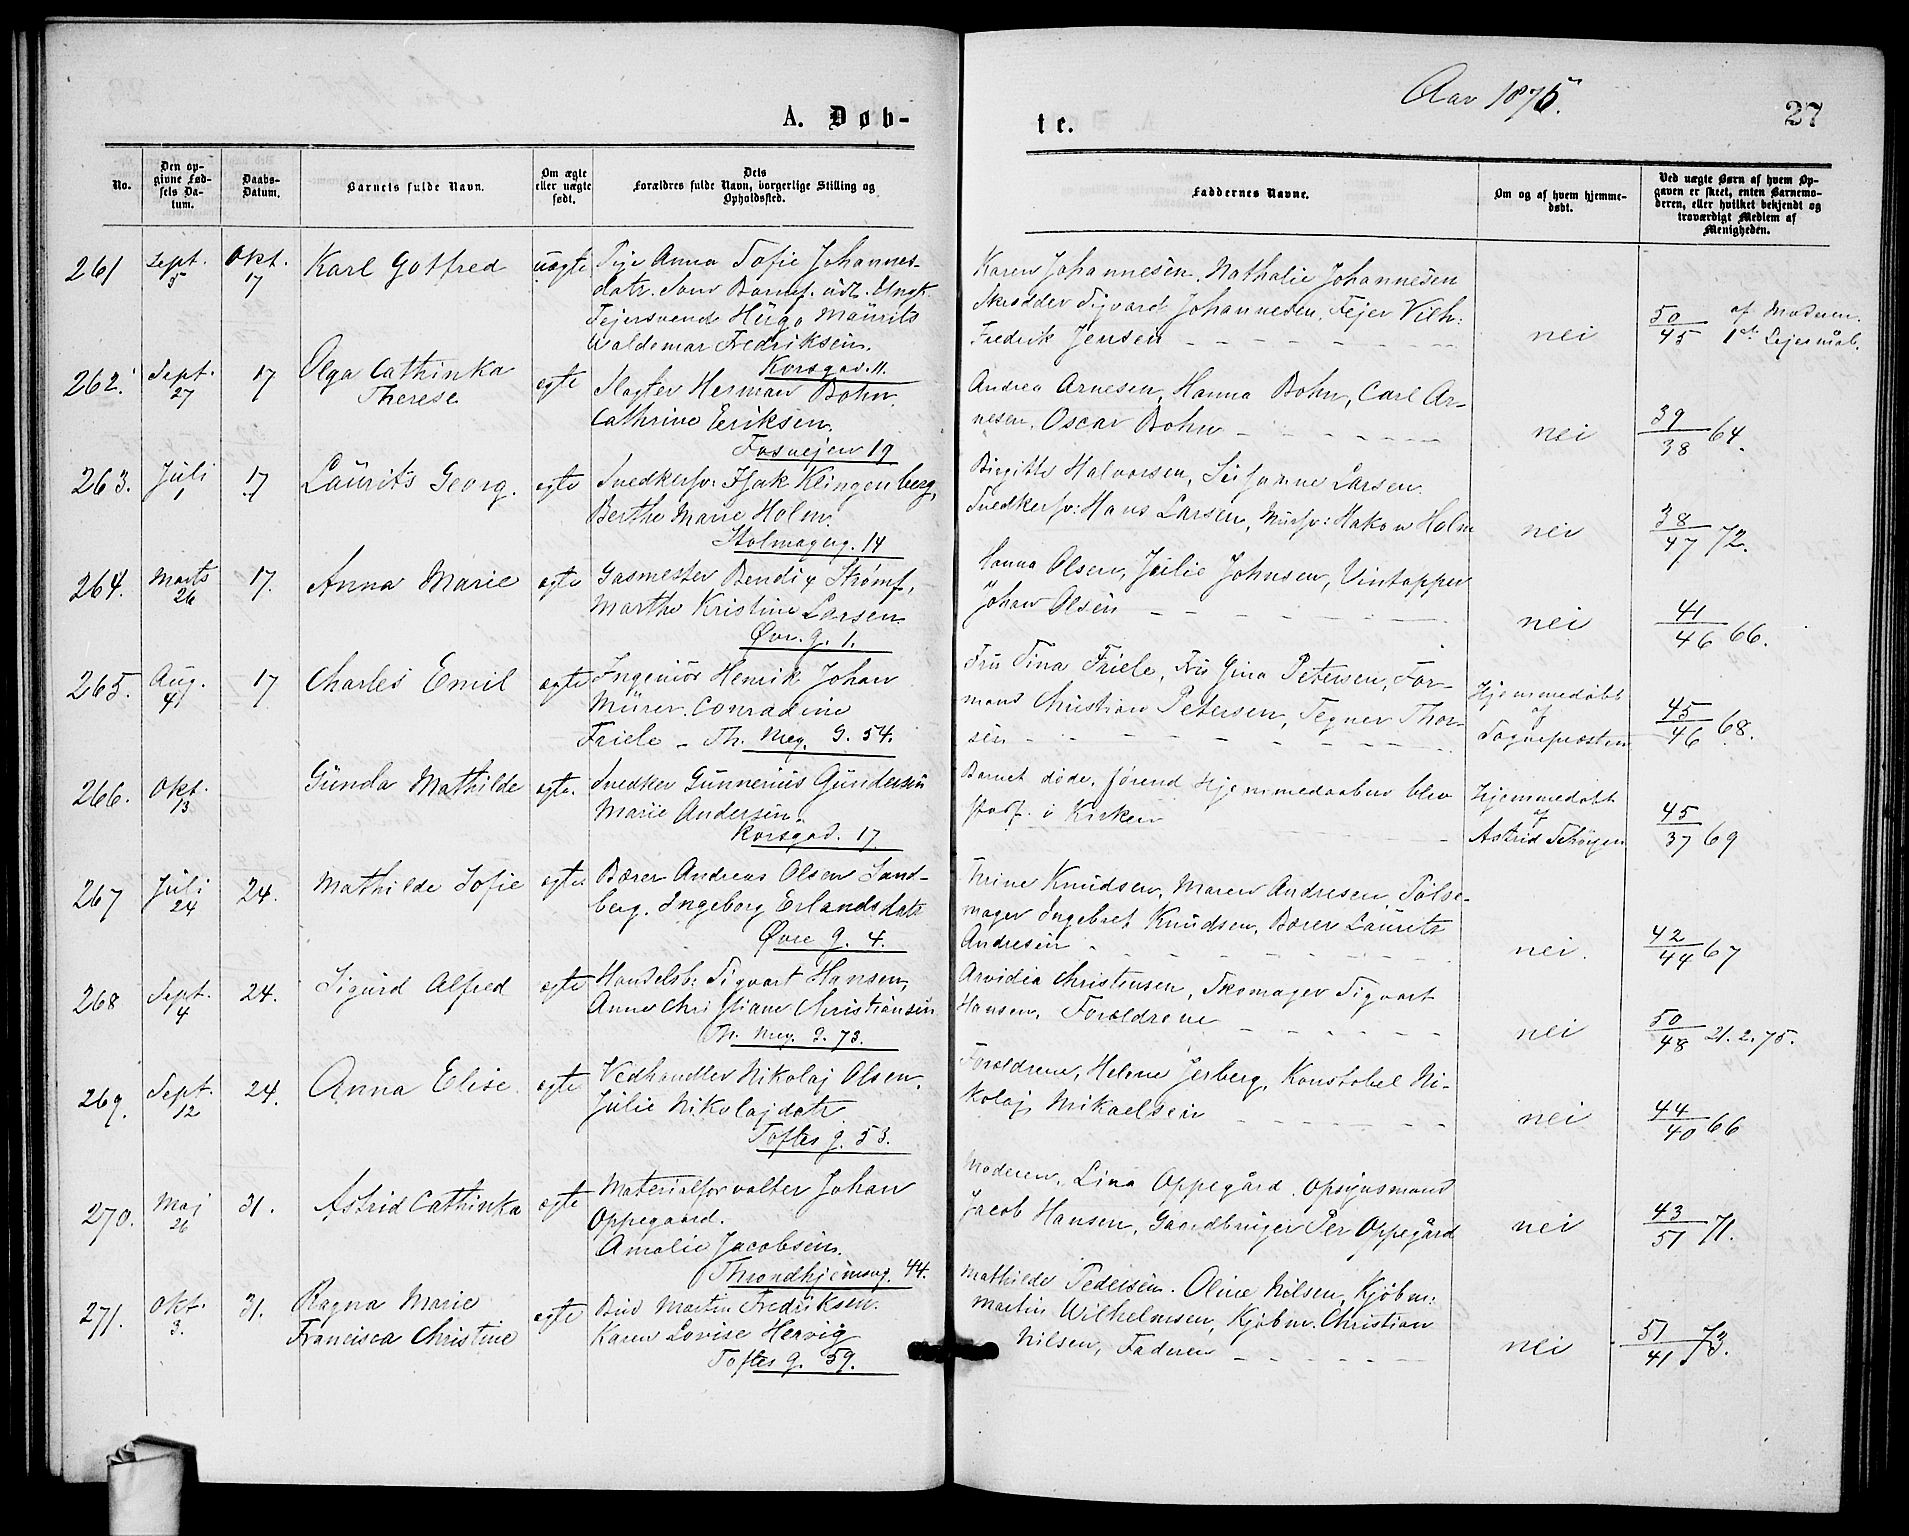 Aar 1875.
A. Døb-
te.
27
No.
Den op-
givne Fød-
sels Da-
tum.
Daabs-
Datum.
Barnets fulde Navn.
Om ægte
eller uægte
født.
Dets
Forældres fulde Navn, borgerlige Stilling og
Opholdssted.
Faddernes Navne.
Om og af hvem hjemme-
døbt.
Ved uægte Børn af hvem Op-
gaven er skeet, enten Barnemo-
deren, eller hvilket bekjendt og
troværdigt Medlem af
Menigheden.
261 Sept. 5 Okt. 17 Karl Gotfred uægte Pige Anna Sofie Johannes-
datr. Som Barnef. udl. Ungk.
Feiersvend Hugo Maurits
Waldemar Fredriksen.
Korsgad. 11.
Karen Johannesen, Nathalie Johannesen
Skrædder Sigvard Johannesen, Fejer Vilh:
Fredrik Jensen
nei 50/45 af Moderen.
1ste Lejermåal.
262. Sept. 27 17 Olga Cathinka
Therese
egte Slagter Herman Bohn.
Cathrine Eriksen.
Fosvejen 19
Andrea Arnesen, Hanna Bohn, Carl Ar-
nesen, Oscar Bohn
nei 39/38 64.
263. Juli 1 17 Laurits Georg. egte Snedkersv: Isak Klingenberg,
Berthe Marie Holm.
Holmageg. 14
Birgitte Halvorsen, Susanne Larsen.
Snedkersv: Hans Larsen, Mursv: Hakon Holm
nei 38/47 72.
264. Marts 26 17. Anna Marie egte Gasmester Bendix Strømf,
Marthe Kristine Larsen.
Øvr. g. 1.
Hanna Olsen, Julie Johnsen, Vintapper
Johan Olsen
nei 41/46 66.
265. Aug. 4 17 Charles Emil egte Ingeniør Henrik Johan
Mürer. Conradine
Friele - Th. Mey. g. 54.
Fru Tina Friele, Fru Gina Petersen, For-
mand Christian Petersen, Tegner Thor-
sen
Hjemmedøbt
af
Sognepræsten
45/46 68.
266. Okt. 13 Gunda Mathilde egte. Snedker Gunnerius Gundersen
Marie Andersen.
Korsgad. 17
Barnet døde, førend Hjemmedaaben blev
stadf. i Kirken
Hjemmedøbt
af
Astrid Schøyen
45/37 69
267 Juli 24 24. Mathilde Sofie egte. Bærer Andreas Olsen Sand-
berg. Ingeborg Erlandsdatr
Øvre g. 4.
Trine Knudsen, Maren Andresen, Pølse-
mager Ingebret Knudsen, Bærer Laurits
Andresen
nei. 42/44 67
268 Sept. 4 24. Sigurd Alfred egte Handelsb: Sigvart Hansen,
Anne Christiane Christiansen
Th. Mey. g. 73.
Arvidia Christensen, Skomager Sigvart
Hansen, Forældrene
nei 50/48 21.2.75.
269. Sept. 12 24. Anna Elise egte Vedhandler Nikolaj Olsen.
Julie Nikolajdatr
Toftes g. 53.
Forældrene, Helene Jerberg, Konstabel Ni-
kolaj Mikaelsen
nei 44/40 66
270. Maj 26 31. Astrid Cathinka egte Materialforvalter Johan
Oppegaard.
Amalie Jacobsen.
Throndhjemsvej. 44.
Moderen, Lina Oppegård, Opsynsmand
Jacob Hansen, Gaardbruger Per Oppegård
nei 43/51 71.
271. Okt. 3. 31. Ragna Marie
Francisca Christine
egte Bud Martin Fredriksen.
Karen Lovise Hervig
Toftes g. 59.
Mathilde Pedersen. Oline Nilsen, Kjøbm:
Martin Wilhelmsen, Kjøbm. Christian
Nilsen, Faderen
nei 51/41 73.